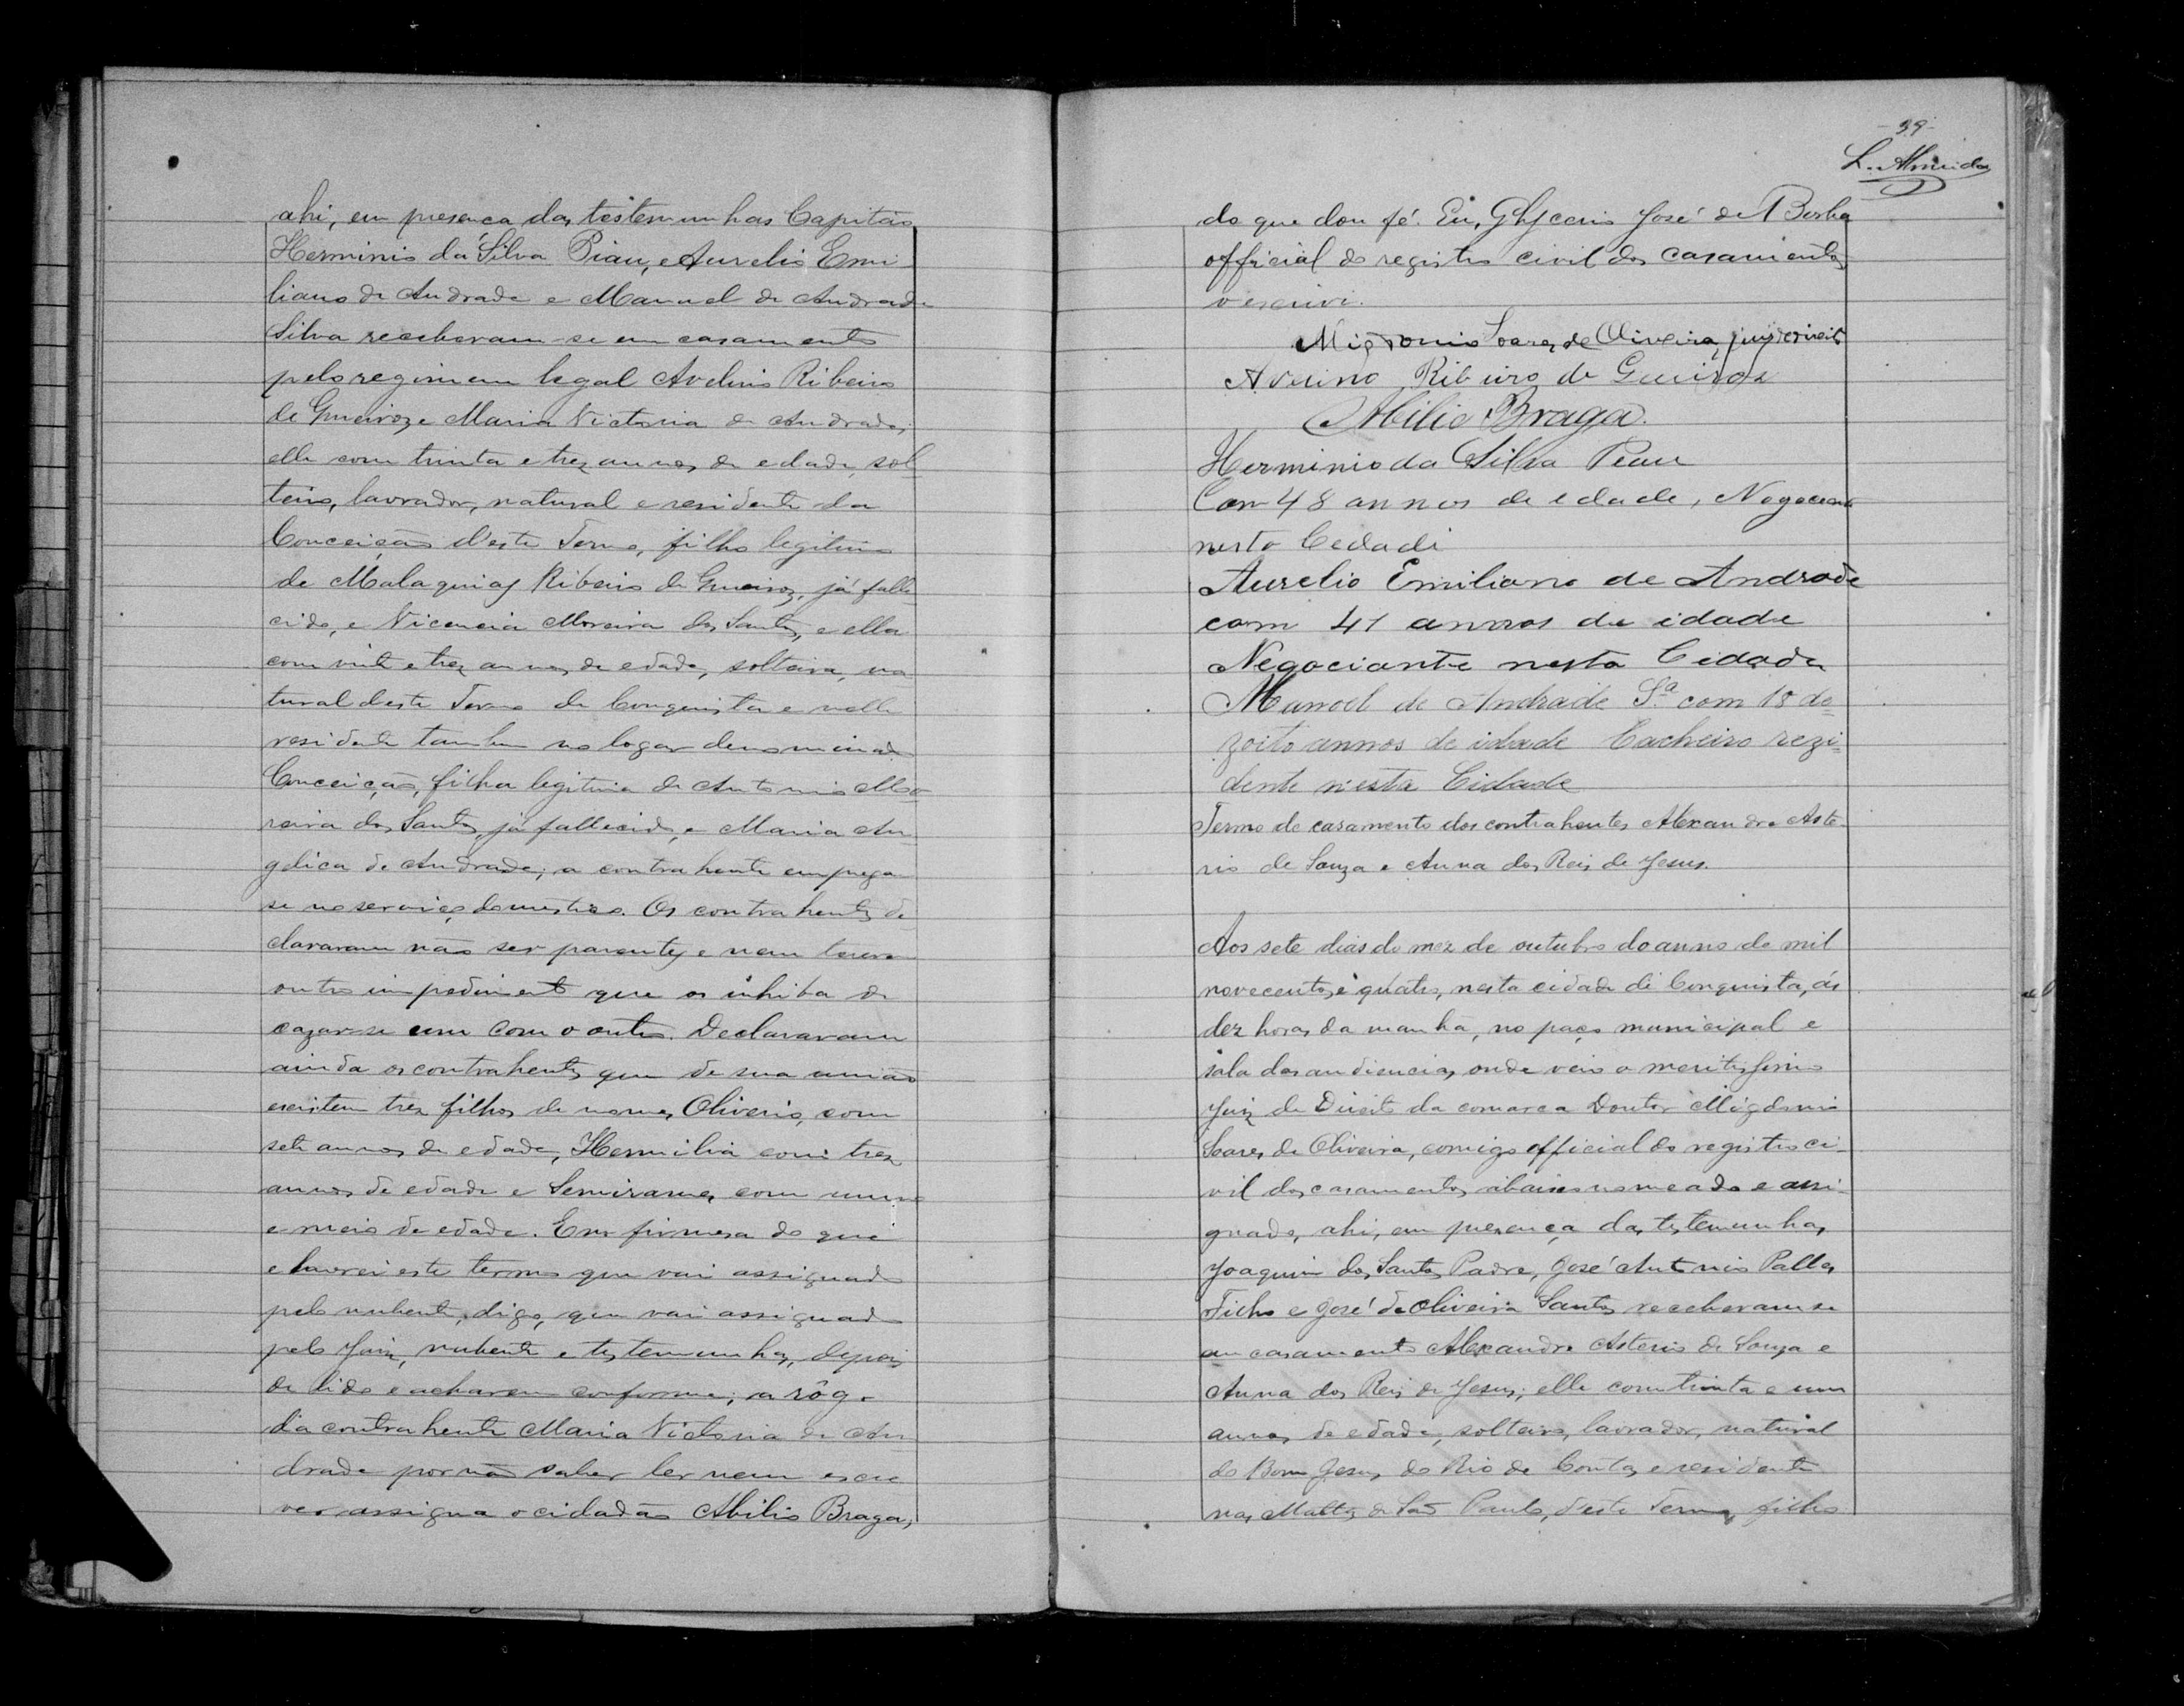 ahi, em presença das testemunhas Capitão
Herminio da Silva Piau, e Aurelio Emi
liano de Andrade e Manuel de Andrade
Silva receberam-se em casamento
pelo regimem legal Avelino Ribeiro
de Queiroz e Maria Victoria de Andrade,
elle com trinta e trez annos de edade, sol
teiro, lavrador, natural e residente da
Conceição d'este Termo, filho legitimo
de Malaquias Ribeiro de Queiroz, já falle
cido, e Vicencia Moreira dos Santos, e ella
com vinte e trez annos de edade, solteira, na
tural deste Termo de Conquista e nelle
residente tambem no logar denominado
Conceição, filha legitima de Antonio Mo
reira dos Santos, já fallecido, e Maria An
gelica de Andrade; a contrahente emprega
se no serviço domestico. Os contrahentes de
clararam não ser parentes e nem terem
outro impedimento que os inhiba de
cazar-se um com o outro. Declararam
ainda os contrahentes que de sua união
existem trez filhos de nomes Oliverio, com
sete annos de edade, Hermilia com trez
annos de edade e Semirames com um
e meio de edade. Em firmesa do que
lavrei este termo que vai assignado
pelo nubente, digo, que vai assignado
pelo Juiz, nubente e testemunhas, depois
de lido e acharem conforme; a rôgo
da contrahente Maria Victoria de An
drade por não saber ler nem escre
ver assigna o cidadão Abilio Braga,
- 39 -
L. Almeida
do que dou fé. Eu, Glycerio José de Borba
official do registro civil dos casamentos
o escrivi.
Migdonio Soares de Oliveira, juiz de direito
Avelino Ribeiro de Queiroz
Abilio Braga.
Herminio da Silva Peau
Com 48 annos de edade, Negociante
nesta Cedade
Aurelio Emiliano de Andrade
com 41 annos de idade
Negociante nesta Cidade
Manoel de Andrade Sª com 18 de
zoito annos de idade Cacheiro rezi=
dente n'esta Cidade
Termo de casamento dos contrahentes Alexandre Aste-
rio de Souza e Anna dos Reis de Jesus.
Aos sete dias do mez de outubro do anno de mil
novecentos e quatro, nesta cidade de Conquista, ás
dez horas da manhã, no paço municipal e
sala das audiencias, onde veio o meritissimo
Juiz de Direito da comarca Doutor Migdonio
Soares de Oliveira, comigo official do registro ci-
vil dos casamentos abaixo nomeado e assi-
gnado, ahi, em presença das testemunhas
Joaquim dos Santos Padre, José Antonio Palles
Filho e José de Oliveira Santos receberam-se
em casamento Alexandre Asterio de Souza e
Anna dos Reis de Jesus; elle com trinta e um
annos de edade, solteiro, lavrador, natural
do Bom Jesus do Rio de Contas e residente
nas Mattas de São Paulo, d'este Termo, filho